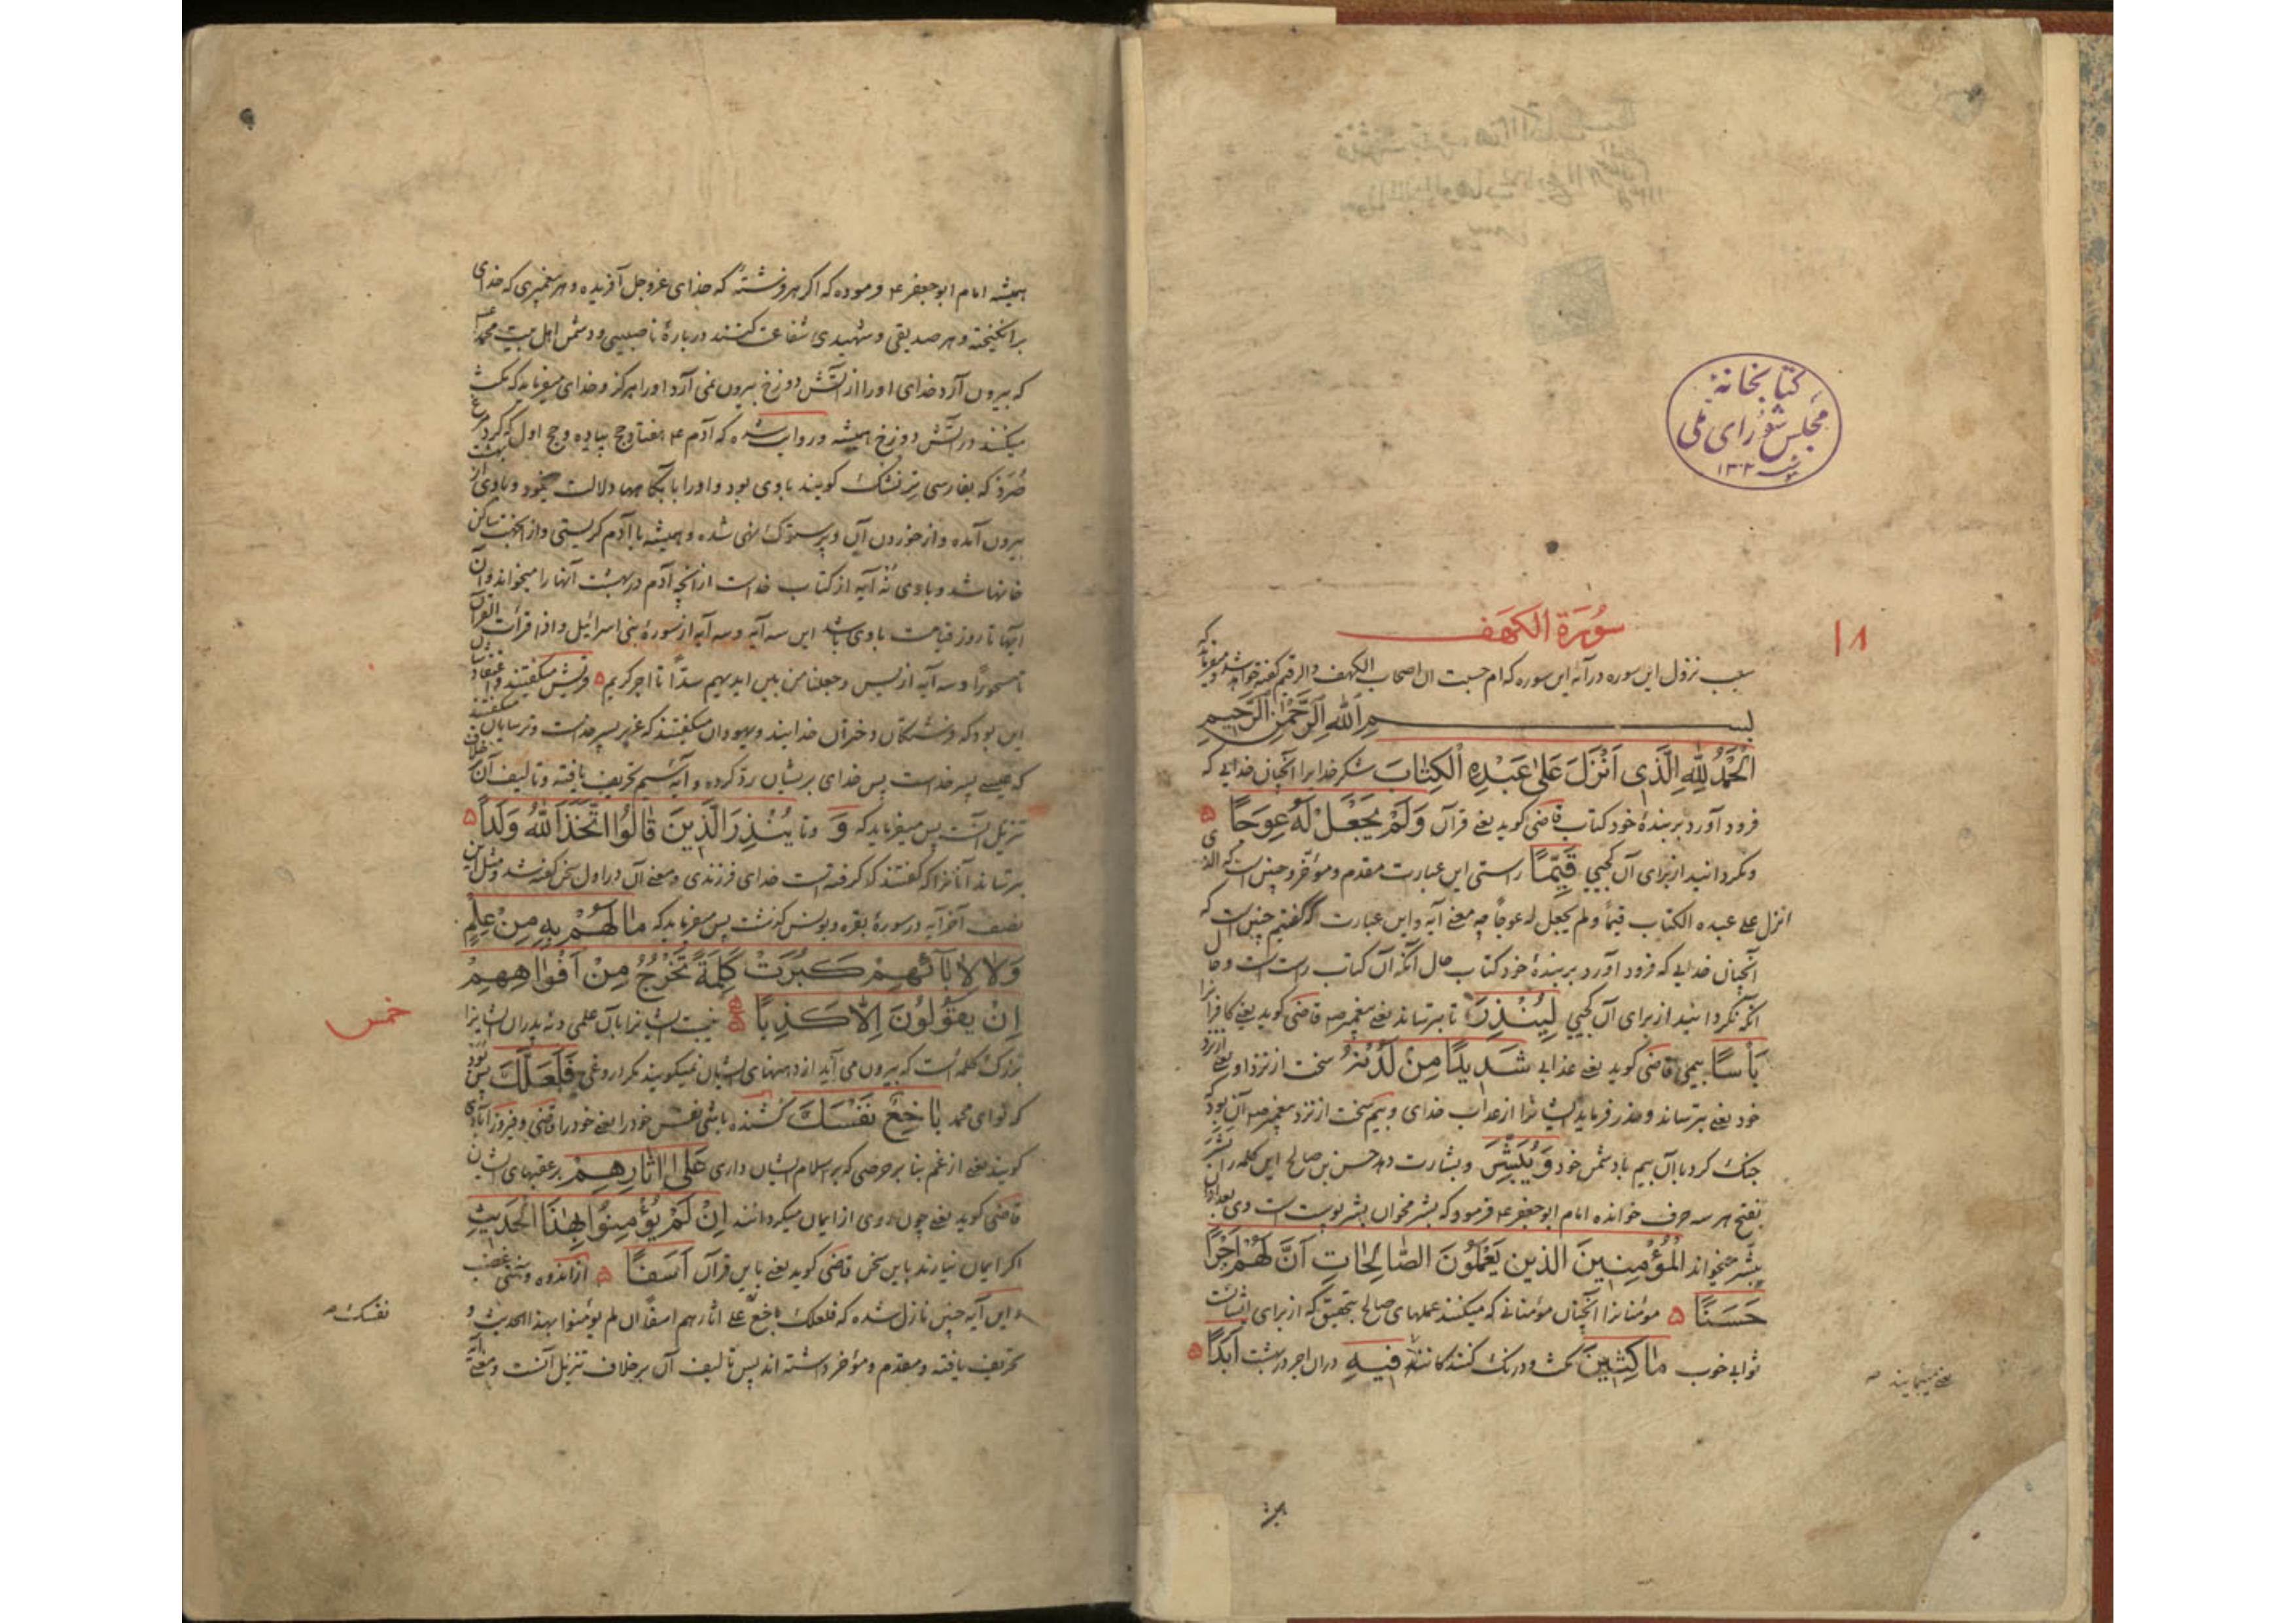 کتابخانهٔ
مجلس شورای ملی
۱۳۰۲
۱۸
سُورَة الکهف
سبب نزول این سوره در آیهٔ این سوره که ام حسبت ان اصحاب الکهف والرقیم گفته خواهد شد و میفرماید که
بســـم اللهِ الرَّحْمٰنِ الرَّحیمِ
اَلْحَمْدُ لِلّهِ الَّذی اَنْزَلَ عَلیٰ عَبْدِهِ الْکِتٰابَ شکر خدایرا آنچنان خدایی که
فرود آورد بر بندهٔ خود کتاب قاضی کوید یعنی قرآن وَلَمْ یَجْعَلْ لَهُ عِوَجًا
و نکردانید از برای آن کجیی قَیِّمًا راستی این عبارت مقدم و مؤخر و چنین است که الذی
انزل علی عبده الکتاب قیّمًا ولم یجعل له عوجًا چه معنی آیه و این عبارت که گفتیم چنین است که
آنچنان خدایی که فرود آورد بر بندهٔ خود کتاب حال آنکه آن کتاب راست است و حال
آنکه نکردانید از برای آن کجیی لِیُنْذِرَ تا بترساند یعنی پیغمبر ص قاضی کوید یعنی کافرانرا
بَأْسًا بیمی قاضی کوید یعنی عذابی شَدیدًا مِنْ لَدُنْهُ سخت از نزد او یعنی از نزد
خود یعنی بترساند و حذر فرماید ایشانرا از عذاب خدای و بیم سخت از نزد پیغمبر ص آن بود که
جنک کرد با آن بیم با دشمن خود وَ یُبَشِّرَ و بشارت دهد حسن بن صالح این کلمه را یَبْشَرَ
بفتح هر سه حرف خوانده امام ابو جعفر ع فرمود که بشر مخوان بشر پوست است وی بعد از آن
یُبَشِّر میخواند الْمُؤْمِنینَ الَّذینَ یَعْمَلُونَ الصّٰالِحٰاتِ اَنَّ لَهُمْ اَجْرًا
حَسَنًا مؤمنانرا آنچنان مؤمنانی که میکنند عملهای صالح بتحقیق که از برای ایشانست
ثوابی خوب مٰاکِثینَ مکث و درنک کنندکانند فیهِ در آن اجر در بهشت اَبَدًا
همیشه امام ابو جعفر ع فرموده که اکر هر فرشتهٔ که خدای عز و جل آفریده و هر پیغمبری که خدای
برانکیخته و هر صدیقی و شهیدی شفاعت کنند دربارهٔ ناصبیی و دشمن اهل بیت محمد
که بیرون آرد خدای او را از آتش دوزخ بیرون نمی آرد او را هرکز و خدای میفرماید که مکث
میکنند در آتش دوزخ همیشه و روایت شده که آدم ع هفتاد حج پیاده و حج اول که کرد
صُرَد که بفارسی کویند با وی بود و او را بآبکاهها دلالت مینمود و با وی از بهشت
بیرون آمده و از خوردن آن و پرستوک نهی شده و همیشه با آدم کریستی و از آنجهت ساکن
خانها شد و با وی نُه آیه از کتاب خداست از آنچه آدم در بهشت آنها را میخواند و آن
آیها تا روز قیامت با وی باشد این سه آیه و سه آیه از سورهٔ بنی اسرائیل و اذا قرأت القرآن
تا مستورًا و سه آیه از یس و جعلنا من بین ایدیهم سدًّا تا اجر کریم قریش میکفتند و اعتقاد
این بود که فرشتکان دختران خدایند و یهودان میکفتند که عزیر پسر خداست و ترسایان میکفتند
که عیسی پسر خداست پس خدای بر یشان ردّ کرده و آیه تحریف یافته و تالیف آن خلاف
تنزیل آنست پس میفرماید که وَ و تا یُنْذِرَ الَّذینَ قٰالُوا اتَّخَذَ اللهُ وَلَدًا
بترساند آنانرا که کفتند که فرا کرفته است خدای فرزندی و معنی آن در اول سخن گفته شد و مثل این
نصف آخر آیه در سورهٔ بقره و یونس کذشت پس میفرماید که مٰا لَهُمْ بِهِ مِنْ عِلْمٍ
وَلٰا لِآبٰائِهِمْ کَبُرَتْ کَلِمَةً تَخْرُجُ مِنْ اَفْوٰاهِهِمْ
اِنْ یَقُولُونَ اِلّٰا کَذِبًا نیست ایشانرا بآن علمی و نه پدران ایشانرا
خمس
بزرک کلمهٔ است که بیرون می آید از دهنهای ایشان نمیکویند مکر دروغی فَلَعَلَّکَ پس
که توای محمد بٰاخِعٌ نَفْسَکَ کشنده باشی نفس خود را یعنی خود را قاضی و فیروزآبادی
کویند یعنی از غم بنا بر حرصی که بر اسلام ایشان داری عَلیٰ اٰثٰارِهِمْ بر عقبهای ایشان
قاضی کوید یعنی چون روی از ایمان میکردانند اِنْ لَمْ یُؤْمِنُوا بِهٰذَا الْحَدیثِ
اکر ایمان نیارند باین سخن قاضی کوید یعنی باین قرآن اَسَفًا از اندوه و غضب
و این آیه چنین نازل شده که فلعلک باخع علی اثارهم اسفًا ان لم یؤمنوا بهذا الحدیث و
نفسک
تحریف یافته و مقدم و مؤخر داشته اند پس تالیف آن بر خلاف تنزیل آنست و معنی آیه